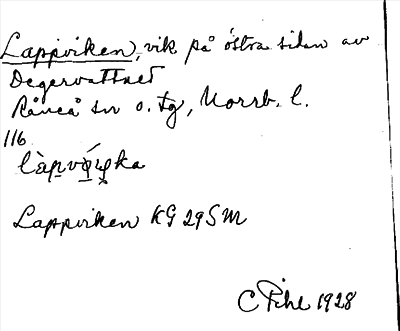 Lappviken, vik på östra sidan av
Degervattnet
Råneå sn o. tg, Norrb. l.
116
Lappviken KG 29 SM
C Pihl 1928